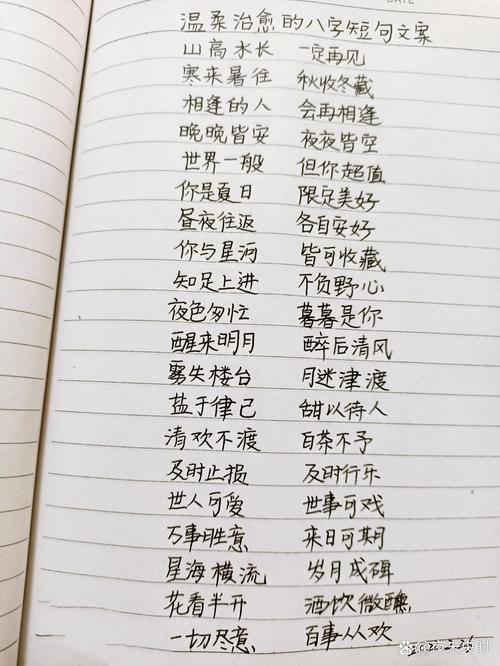 DATE
温柔治愈的八字短句文案
山高水长 一定再见
寒来暑往 秋收冬藏
相逢的人 会再相逢
晚晚皆安 夜夜皆空
世界一般 但你超值
你是夏日 限定美好
昼夜往返 各自安好
你与星河 皆可收藏
知足上进 不负野心
夜色匆忙 暮暮是你
醒来明月 醉后清风
雾失楼台 月迷津渡
盐于律己 甜以待人
清欢不渡 白茶不予
及时止损 及时行乐
世人可爱 世事可戏
万事胜意 来日可期
星海横流 岁月成碑
花看半开 酒饮微醺
一切尽意 百事从欢